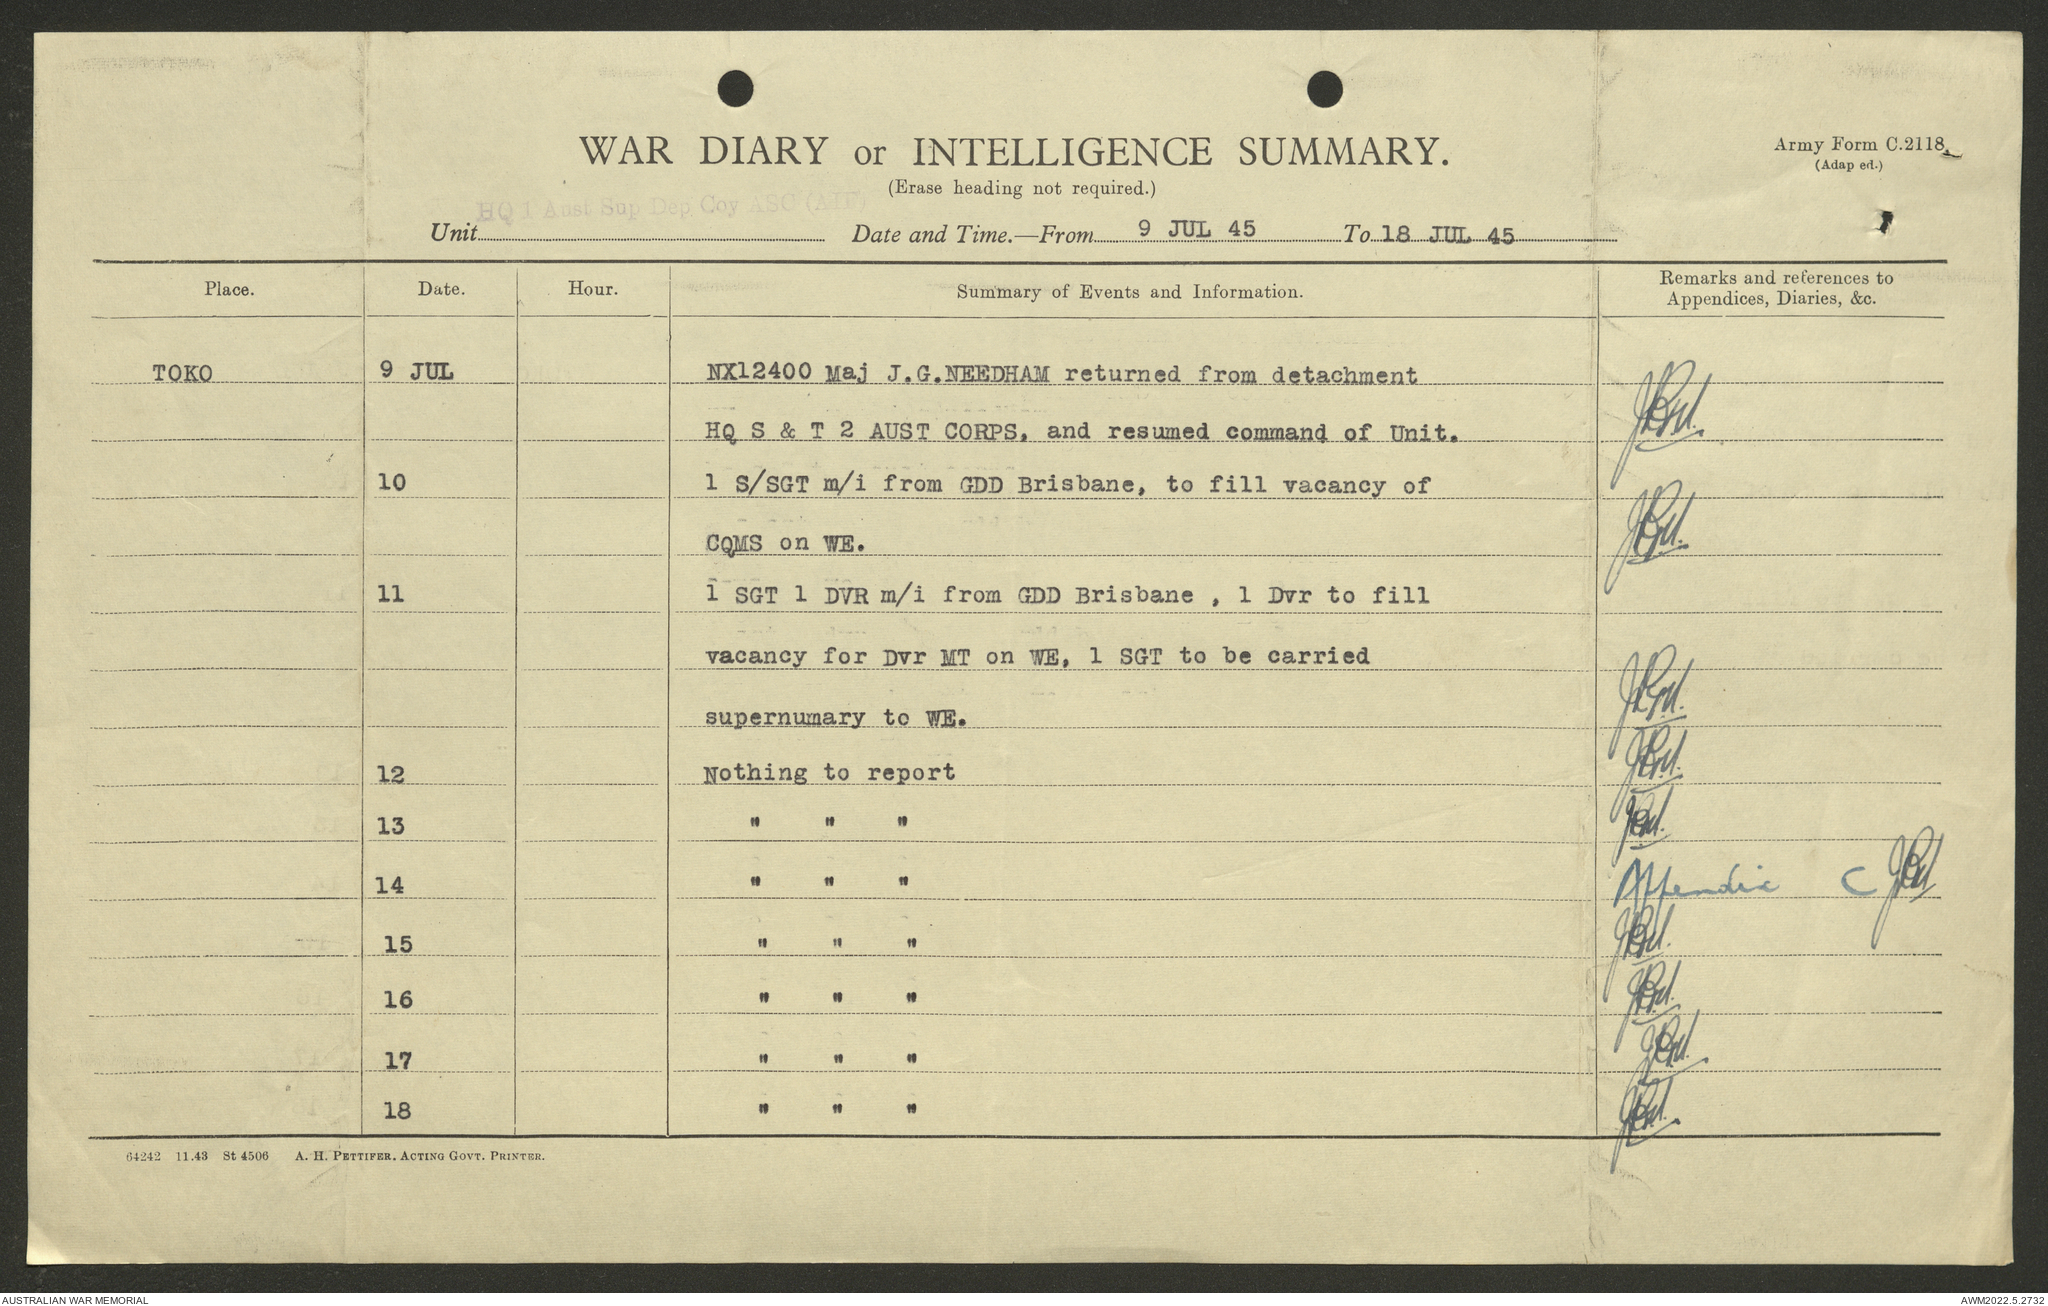 WAR DIARY or INTELLIGENCE SUMMARY.
(Erase heading not required.)
Army Form C.2118.
(Adap ed.)
HQ 1 Aust Sup Dep Coy ASC (AIF)
Unit Date and Time.—From 9 JUL 45 To 18 JUL 45
Place. Date. Hour. Summary of Events and Information. Remarks and references to Appendices, Diaries, &c.
TOKO 9 JUL NX12400 Maj J.G.NEEDHAM returned from detachment
HQ S & T 2 AUST CORPS, and resumed command of Unit.
10 1 S/SGT m/i from GDD Brisbane, to fill vacancy of
CQMS on WE.
11 1 SGT 1 DVR m/i from GDD Brisbane , 1 Dvr to fill
vacancy for Dvr MT on WE, 1 SGT to be carried
supernumary to WE.
12 Nothing to report
13 " " "
14 " " " Appendix C
15 " " "
16 " " "
17 " " "
18 " " "
64242 11.43 St 4506 A. H. PETTIFER. ACTING GOVT. PRINTER.
AUSTRALIAN WAR MEMORIAL AWM2022.5.2732